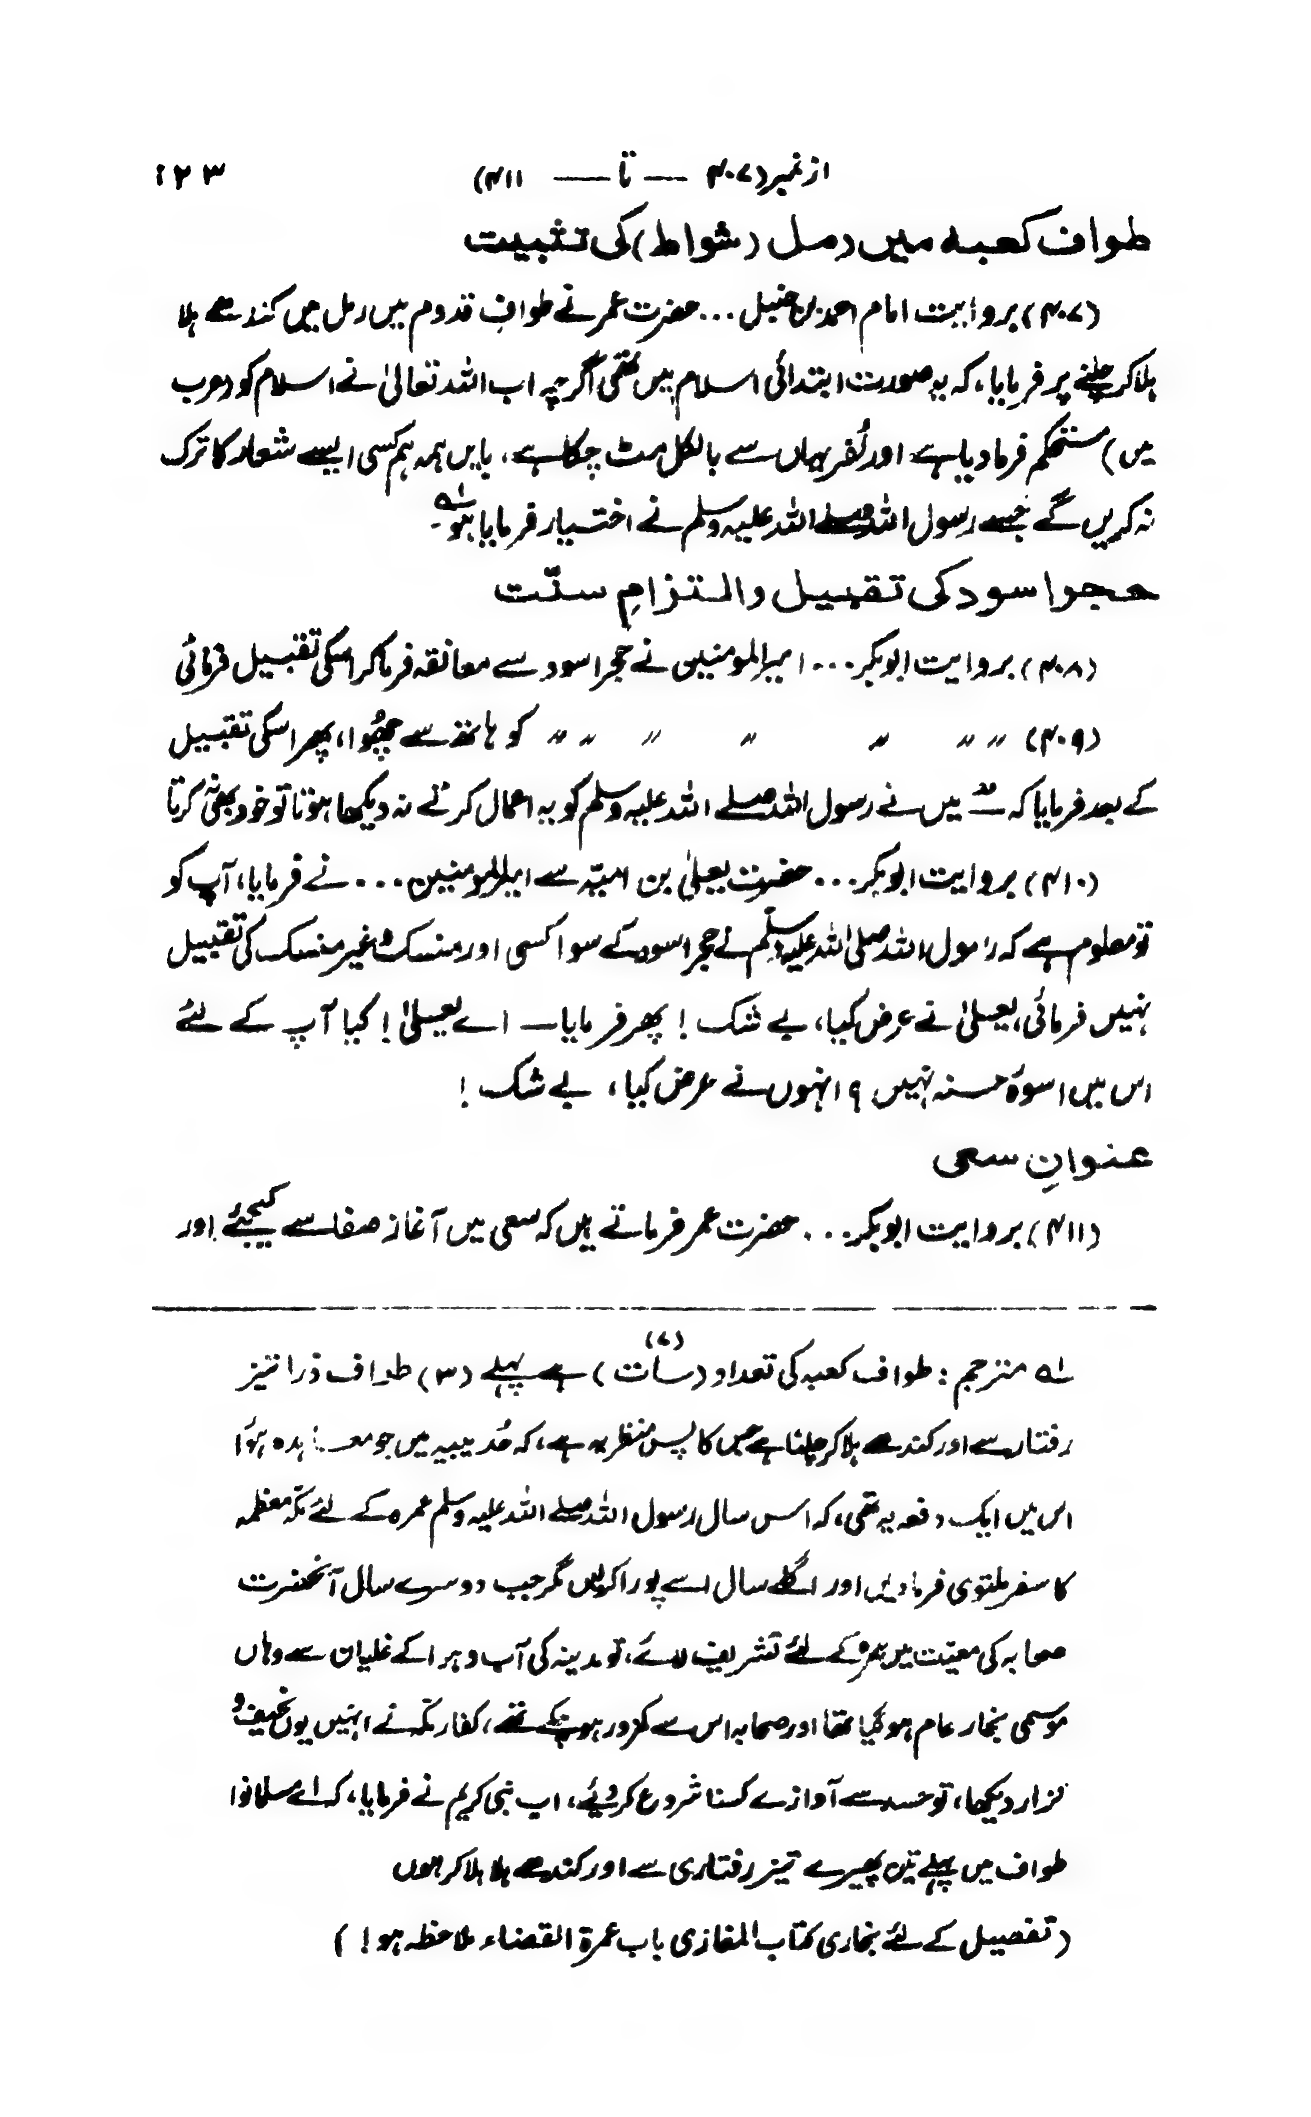 از نمبر (۴۰۷ — تا — ۴۱۱) ۱۲۳
طواف کعبہ میں رمل (شواط) کی تثبیت
(۴۰۷) بروایت امام احمد بن حنبل ... حضرت عمر نے طوافِ قدوم میں رمل میں کندھے ہلا
ہلا کر چلنے پر فرمایا، کہ یہ صورت ابتدائی اسلام میں تھی اگرچہ اب اللہ تعالیٰ نے اسلام کو (عرب
میں) مستحکم فرما دیا ہے اور کُفر یہاں سے بالکل مٹ چکا ہے، بایں ہمہ ہم کسی ایسے شعار کا ترک
نہ کریں گے جسے رسول اللہ صلے اللہ علیہ وسلم نے اختیار فرمایا ہو۔ ؎۱
حجر اسود کی تقبیل والتزامِ سنّت
(۴۰۸) بروایت ابوبکر ... امیر المومنین نے حجر اسود سے معانقہ فرما کر اسکی تقبیل فرمائی
(۴۰۹) 〃 〃 〃 〃 〃 〃 〃 کو ہاتھ سے چھُوا، پھر اسکی تقبیل
کے بعد فرمایا کہ میں نے رسول اللہ صلے اللہ علیہ وسلم کو یہ اعمال کرتے نہ دیکھا ہوتا تو خود بھی نہ کرتا
(۴۱۰) بروایت ابوبکر ... حضرت یعلیٰ بن امیّہ سے امیر المومنین ... نے فرمایا، آپ کو
تو معلوم ہے کہ رسول اللہ صلی اللہ علیہ وسلّم نے حجر اسود کے سوا کسی اور منسک و غیر منسک کی تقبیل
نہیں فرمائی، یعلیٰ نے عرض کیا، بے شک ! پھر فرمایا — اے یعلیٰ ! کیا آپ کے لئے
اس میں اسوۂ حسنہ نہیں ؟ انہوں نے عرض کیا، بے شک !
عنوانِ سعی
(۴۱۱) بروایت ابوبکر ... حضرت عمر فرماتے ہیں کہ سعی میں آغاز صفا سے کیجئے اور
؎۱ مترجم : طواف کعبہ کی تعداد (سات) (۷) ہے پہلے (۳) طواف ذرا تیز
رفتار سے اور کندھے ہلا کر چلنا ہے جس کا پس منظر یہ ہے، کہ حُدیبیہ میں جو معاہدہ ہوُا
اس میں ایک دفعہ یہ تھی، کہ اس سال رسول اللہ صلے اللہ علیہ وسلم عمرہ کے لئے مکّہ معظمہ
کا سفر ملتوی فرما دیں اور اگلے سال اسے پورا کر لیں مگر جب دوسرے سال آنحضرت
صحابہ کی معیّت میں عمرہ کے لئے تشریف لائے، تو مدینہ کی آب و ہوا کے غلیان سے وہاں
موسمی بخار عام ہو گیا تھا اور صحابہ اس سے کمزور ہو چکے تھے، کفار مکّہ نے انہیں یوں نحیف و
نزار دیکھا، تو حسد سے آوازے کسنا شروع کر دیئے، اب نبی کریم نے فرمایا، کہ اے مسلمانو!
طواف میں پہلے تین پھیرے تیز رفتاری سے اور کندھے ہلا ہلا کر ہوں
(تفصیل کے لئے بخاری کتاب المغازی باب عمرۃ القضاء ملاحظہ ہو ! )